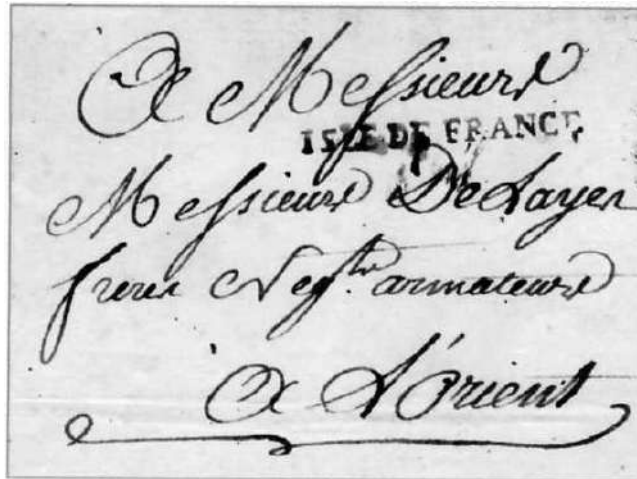 A Messieurs
ISLE DE FRANCE
Messieurs Delayer
freres Negts. armateurs
A L'Orient